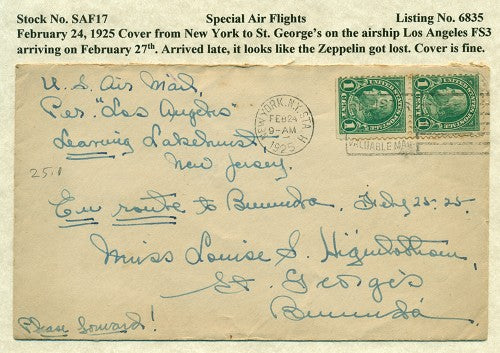 Stock No. SAF17 Special Air Flights Listing No. 6835
February 24, 1925 Cover from New York to St. George's on the airship Los Angeles FS3
arriving on February 27th. Arrived late, it looks like the Zeppelin got lost. Cover is fine.
U.S. Air Mail,
Per. "Los Angeles"
Leaving Lakehurst
New Jersey.
NEW YORK, N.Y. STA. H
FEB 24
9-AM
1925
UNITED STATES POSTAGE
1 CENT 1
UNITED STATES POSTAGE
1 CENT 1
VALUABLE MAIL
25.1
Enroute to Bermuda. Feby 25-25.
Miss Louise S. Higinbothom
St. George's
Bermuda
Please forward!